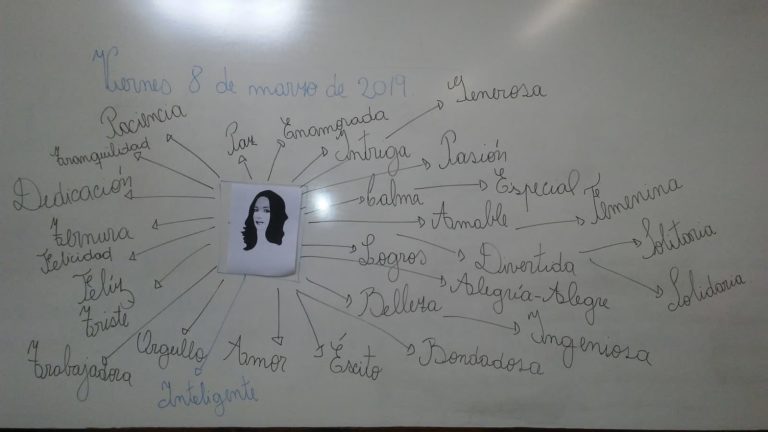 Viernes 8 de marzo de 2019.
Generosa
Paciencia
Enamorada
Paz
Tranquilidad
Intriga
Pasión
Dedicación
Calma
Especial
Femenina
Ternura
Amable
Felicidad
Logros
Divertida
Solitaria
Solidaria
Feliz
Alegría-Alegre
Triste
Belleza
Ingeniosa
Trabajadora
Orgullo
Amor
Éxcito
Bondadosa
Inteligente